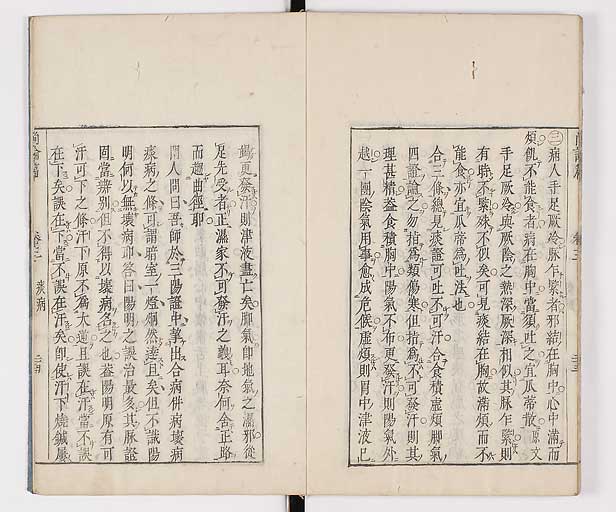 ㊂病人手足厥冷脉乍緊者邪結在胸中心中滿而
煩飢不能食者病在胸中當須吐之宜瓜蒂散原文
手足厥冷與厥陰之熱深厥深相似其脉乍緊則
有時不緊殊不似矣可見痰結在胸故滿煩而不
能食亦宜瓜蒂為吐法也
合三條總見痰證可吐不可汗合食積虛煩脚氣
四證論之勿指為類傷寒但指為不可發汗則其
理甚精盖食積胸中陽氣不布更發汗則陽氣外
越一團陰氣用事愈成危候虛煩則胃中津液已
竭更發汗則津液盡亡矣脚氣即地氣之濕邪從
足先受者正濕家不可發汗之義耳奈何舍正路
而趨曲徑耶
門人問曰吾師於三陽證中摯出合病併病壞病
痰病之條可謂暗室一燈炯然達旦矣但不識陽
明何以無壞病耶答曰陽明之誤治最多其脉證
固當辨別但不得以壞病名之也盖陽明原有可
汗可下之條汗下原不為大逆且誤在汗當不誤
在下矣誤在下當不誤在汗矣即使汗下燒鍼屢
尚論篇
卷二
痰病